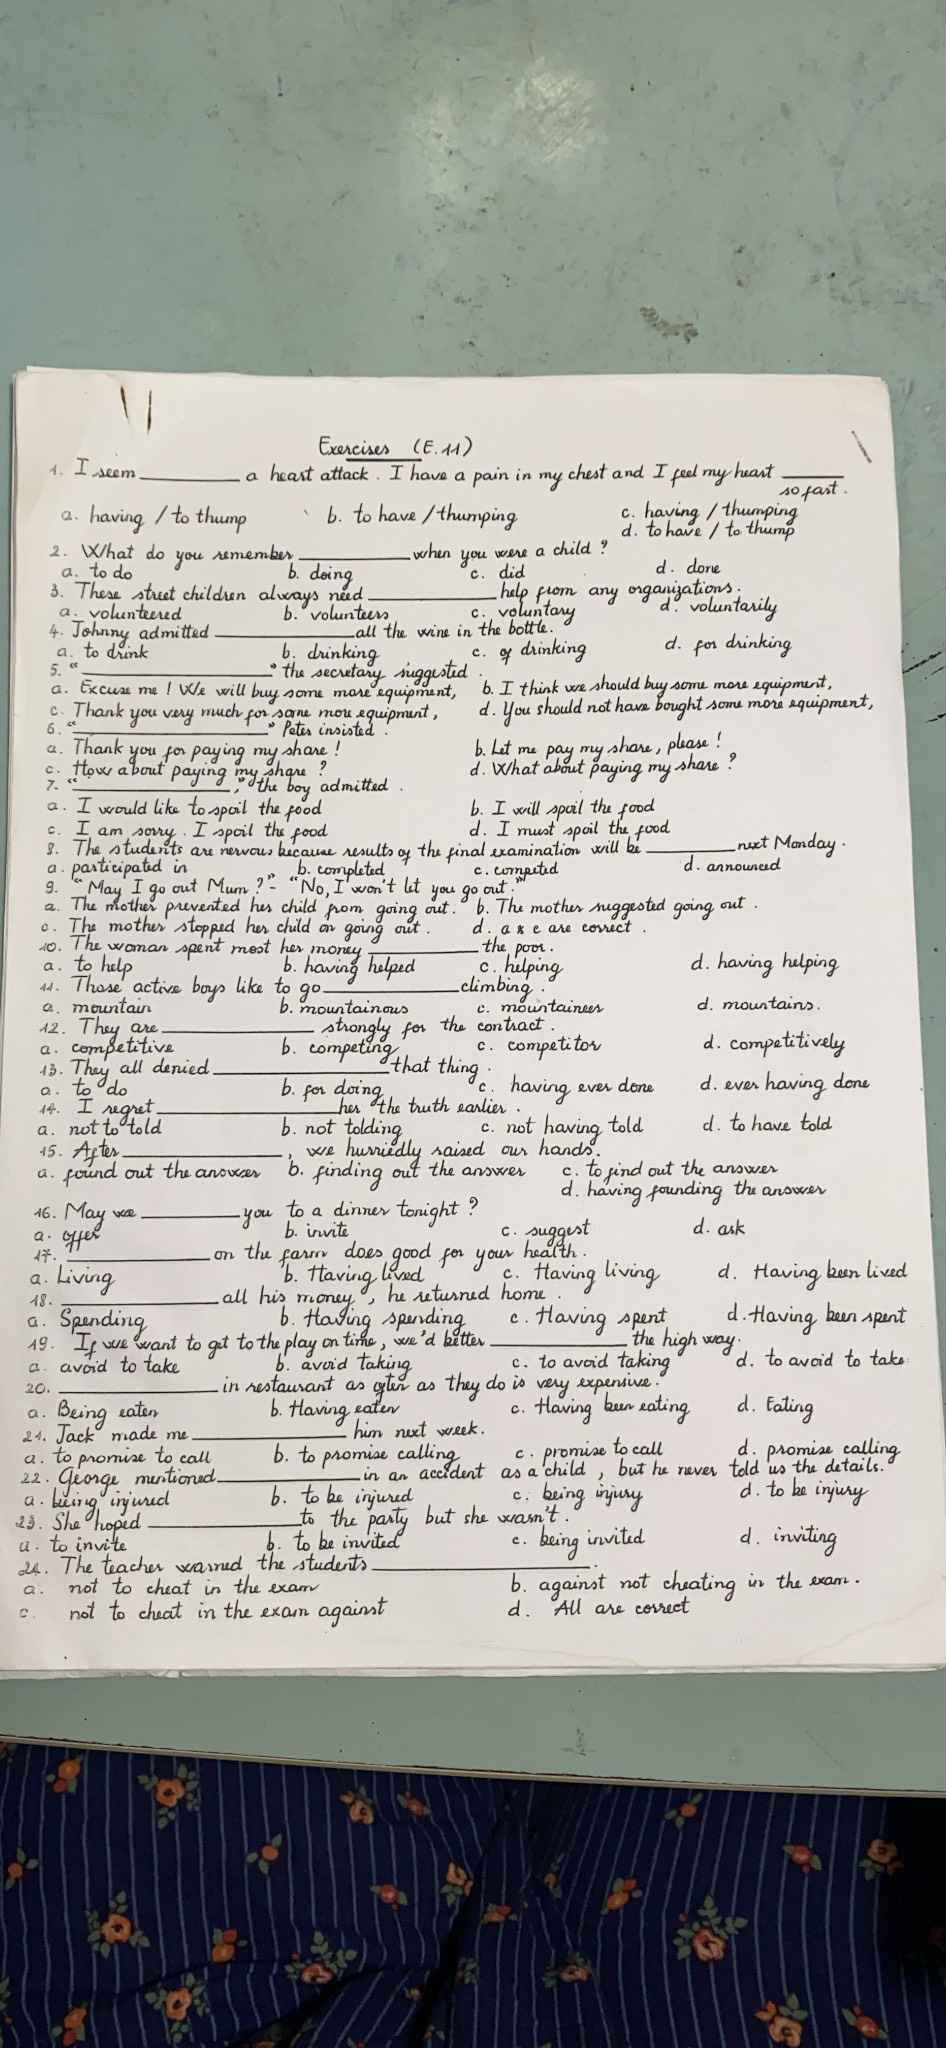 Exercises (E.11)
1. I seem ________ a heart attack. I have a pain in my chest and I feel my heart ______ so fast.
a. having / to thump b. to have / thumping c. having / thumping
d. to have / to thump
2. What do you remember ________ when you were a child?
a. to do b. doing c. did d. done
3. These street children always need ________ help from any organizations.
a. volunteered b. volunteers c. voluntary d. voluntarily
4. Johnny admitted ________ all the wine in the bottle.
a. to drink b. drinking c. of drinking d. for drinking
5. "________" the secretary suggested.
a. Excuse me! We will buy some more equipment, b. I think we should buy some more equipment,
c. Thank you very much for some more equipment, d. You should not have bought some more equipment,
6. "________" Peter insisted.
a. Thank you for paying my share! b. Let me pay my share, please!
c. How about paying my share? d. What about paying my share?
7. "________," the boy admitted.
a. I would like to spoil the food b. I will spoil the food
c. I am sorry. I spoil the food d. I must spoil the food
8. The students are nervous because results of the final examination will be ________ next Monday.
a. participated in b. completed c. competed d. announced
9. "May I go out Mum?" - "No, I won't let you go out."
a. The mother prevented her child from going out. b. The mother suggested going out.
c. The mother stopped her child on going out. d. a & c are correct.
10. The woman spent most her money ________ the poor.
a. to help b. having helped c. helping d. having helping
11. Those active boys like to go ________ climbing.
a. mountain b. mountainous c. mountaineer d. mountains.
12. They are ________ strongly for the contract.
a. competitive b. competing c. competitor d. competitively
13. They all denied ________ that thing.
a. to do b. for doing c. having ever done d. ever having done
14. I regret ________ her the truth earlier.
a. not to told b. not tolding c. not having told d. to have told
15. After ________, we hurriedly raised our hands.
a. found out the answer b. finding out the answer c. to find out the answer
d. having founding the answer
16. May we ________ you to a dinner tonight?
a. offer b. invite c. suggest d. ask
17. ________ on the farm does good for your health.
a. Living b. Having lived c. Having living d. Having been lived
18. ________ all his money, he returned home.
a. Spending b. Having spending c. Having spent d. Having been spent
19. If we want to get to the play on time, we'd better ________ the high way.
a. avoid to take b. avoid taking c. to avoid taking d. to avoid to take
20. ________ in restaurant as often as they do is very expensive.
a. Being eaten b. Having eaten c. Having been eating d. Eating
21. Jack made me ________ him next week.
a. to promise to call b. to promise calling c. promise to call d. promise calling
22. George mentioned ________ in an accident as a child, but he never told us the details.
a. being injured b. to be injured c. being injury d. to be injury
23. She hoped ________ to the party but she wasn't.
a. to invite b. to be invited c. being invited d. inviting
24. The teacher warned the students ________.
a. not to cheat in the exam b. against not cheating in the exam.
c. not to cheat in the exam against d. All are correct